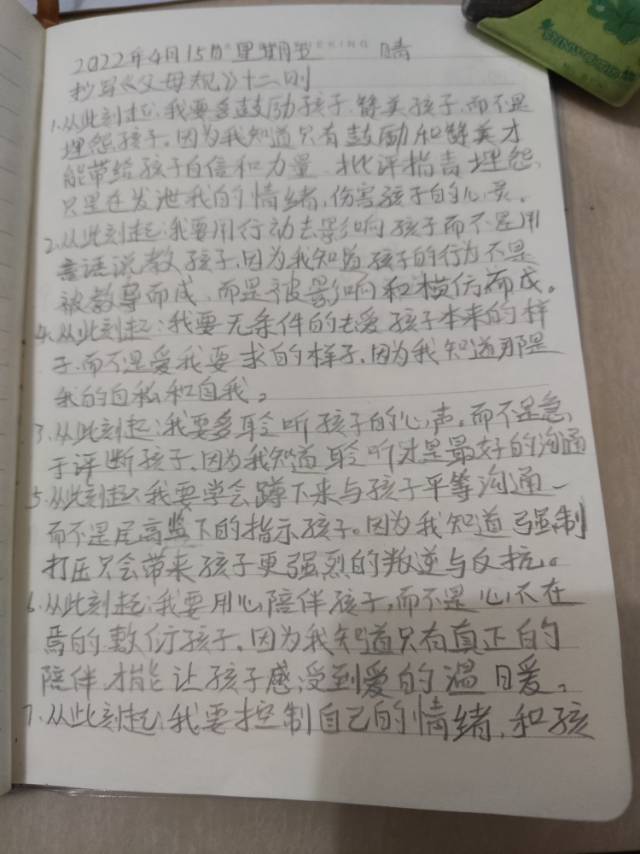 2022年4月15日 星期五 晴
抄写《父母规》十二则
1.从此刻起:我要多鼓励孩子.赞美孩子.而不是
埋怨孩子.因为我知道只有鼓励和赞美才
能带给孩子自信和力量.批评指责埋怨
只是在发泄我的情绪,伤害孩子的心灵。
2.从此刻起:我要用行动去影响孩子而不是用
言语说教孩子.因为我知道孩子的行为不是
被教导而成.而是被影响和模仿而成。
4.从此刻起:我要无条件的去爱孩子本来的样
子.而不是爱我要求的样子.因为我知道那是
我的自私和自我。
3.从此刻起:我要多聆听孩子的心声.而不是急
于评断孩子.因为我知道聆听才是最好的沟通
5.从此刻起:我要学会蹲下来与孩子平等沟通—
而不是居高监下的指示孩子。因为我知道强制
打压只会带来孩子更强烈的叛逆与反抗。
6.从此刻起:我要用心陪伴孩子,而不是心不在
焉的敷衍孩子.因为我知道只有真正的
陪伴才能让孩子感受到爱的温暖。
7.从此刻起:我要控制自己的情绪,和孩